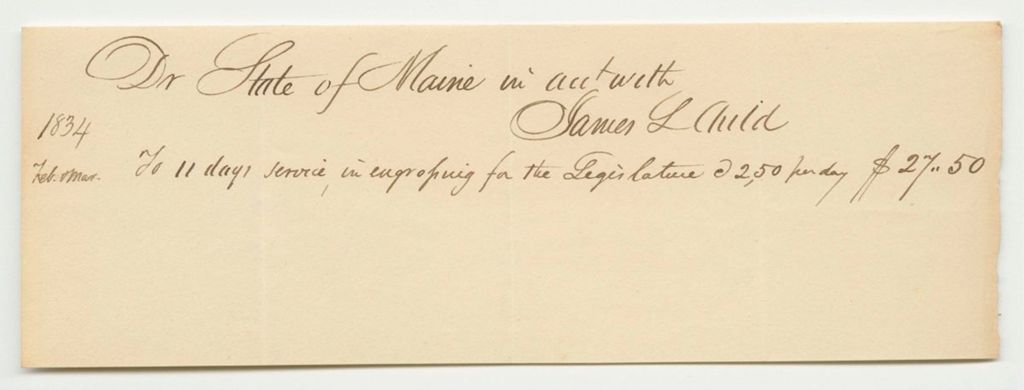 Dr State of Maine in acct with
James L Child
1834
Feb. & Mar. To 11 days service, in engrossing for the Legislature @ 2,50 per day $ 27.. 50